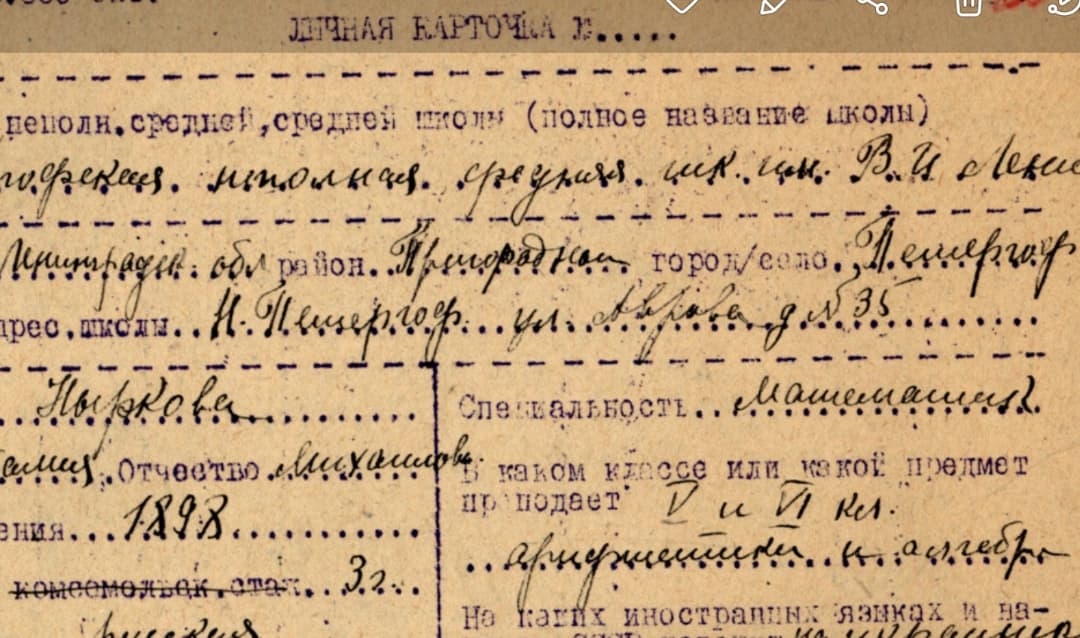 ЛИЧНАЯ КАРТОЧКА №.....
неполн.средней,средней школы (полное название школы)
гофская. неполная. средняя. шк. им. В. И Лени
обл район. Пригородном город/село. Петергоф
дрес.школы.. Н. Петергоф. ул. Аврова д № 35
Ныркова
Специальность.. математик
Отчество Михайловна
В каком классе или какой предмет
преподает V и VI кл.
ения...1898
арифметики и алгебры
комсомольск.стаж.. 3 г.
На каких иностранных языках и на-
русская